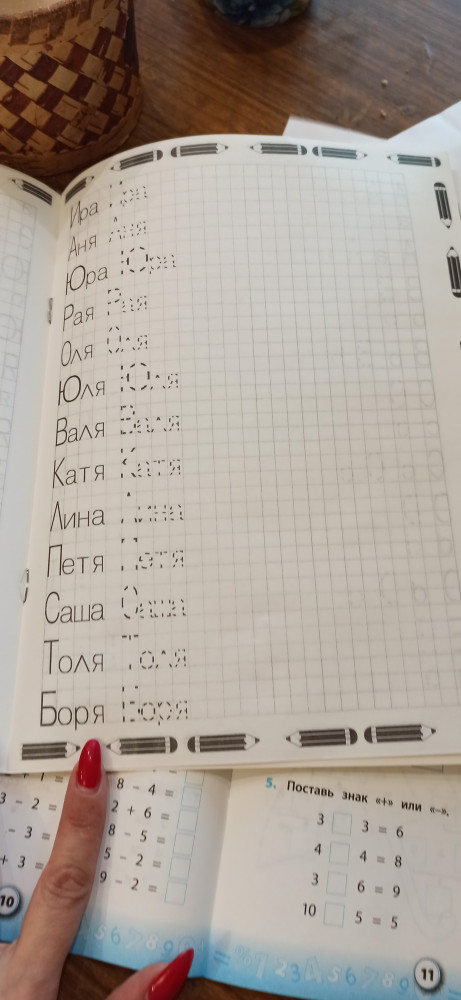 Ира Ира
Аня Аня
Юра Юра
Рая Рая
Оля Оля
Юля Юля
Валя Валя
Катя Катя
Лина Лина
Петя Петя
Саша Саша
Толя Толя
Боря Боря
3 - 2 =
- 3 =
+ 3 =
10
8 - 4 =
2 + 6 =
8 - 5 =
5 - 2 =
9 - 2 =
5. Поставь знак «+» или «-».
3 3 = 6
4 4 = 8
3 6 = 9
10 5 = 5
11